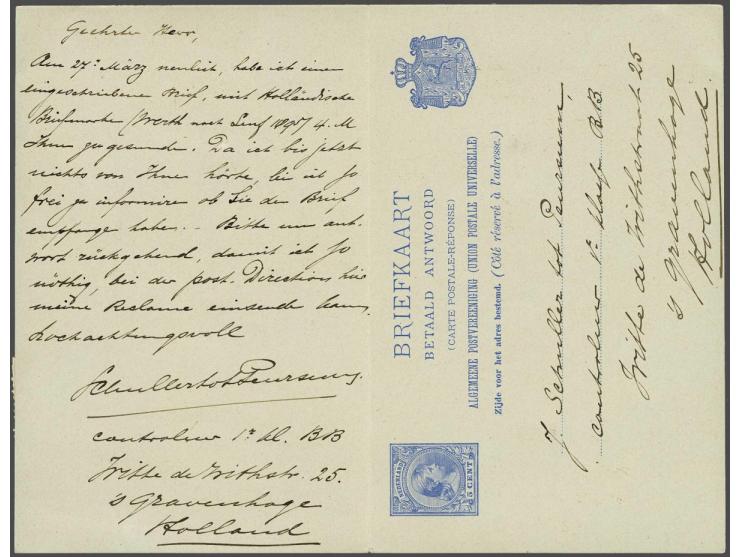 Geehrter Herr,
Am 27. März neulich, habe ich einen
eingeschriebene Brief, mit Holländische
Briefmarke (Werth nach Senf 1895) 4. M
Ihnen zugesandt. Da ich bis jetzt
nichts von Ihnen hörte, bin ich so
frei zu informiren ob Sie den Brief
empfange habe. - Bitte um ant-
wort rückgehend, damit ich so
nöthig, bei der post. Direction hie
meine Reclame einsende kann,
hochachtungsvoll
Schullertot Peursum.
controleur 1e kl. BB
Witte de Withstr. 25.
's Gravenhage
Holland
BRIEFKAART
BETAALD ANTWOORD
(CARTE POSTALE-RÉPONSE)
ALGEMEENE POSTVEREENIGING (UNION POSTALE UNIVERSELLE)
Zijde voor het adres bestemd. (Côté réservé à l'adresse.)
NEDERLAND
5 CENT 5
J. Schuller tot Peursum,
controleur 1e klasse B.B.
Witte de Withstraat 25
's Gravenhage
Holland.